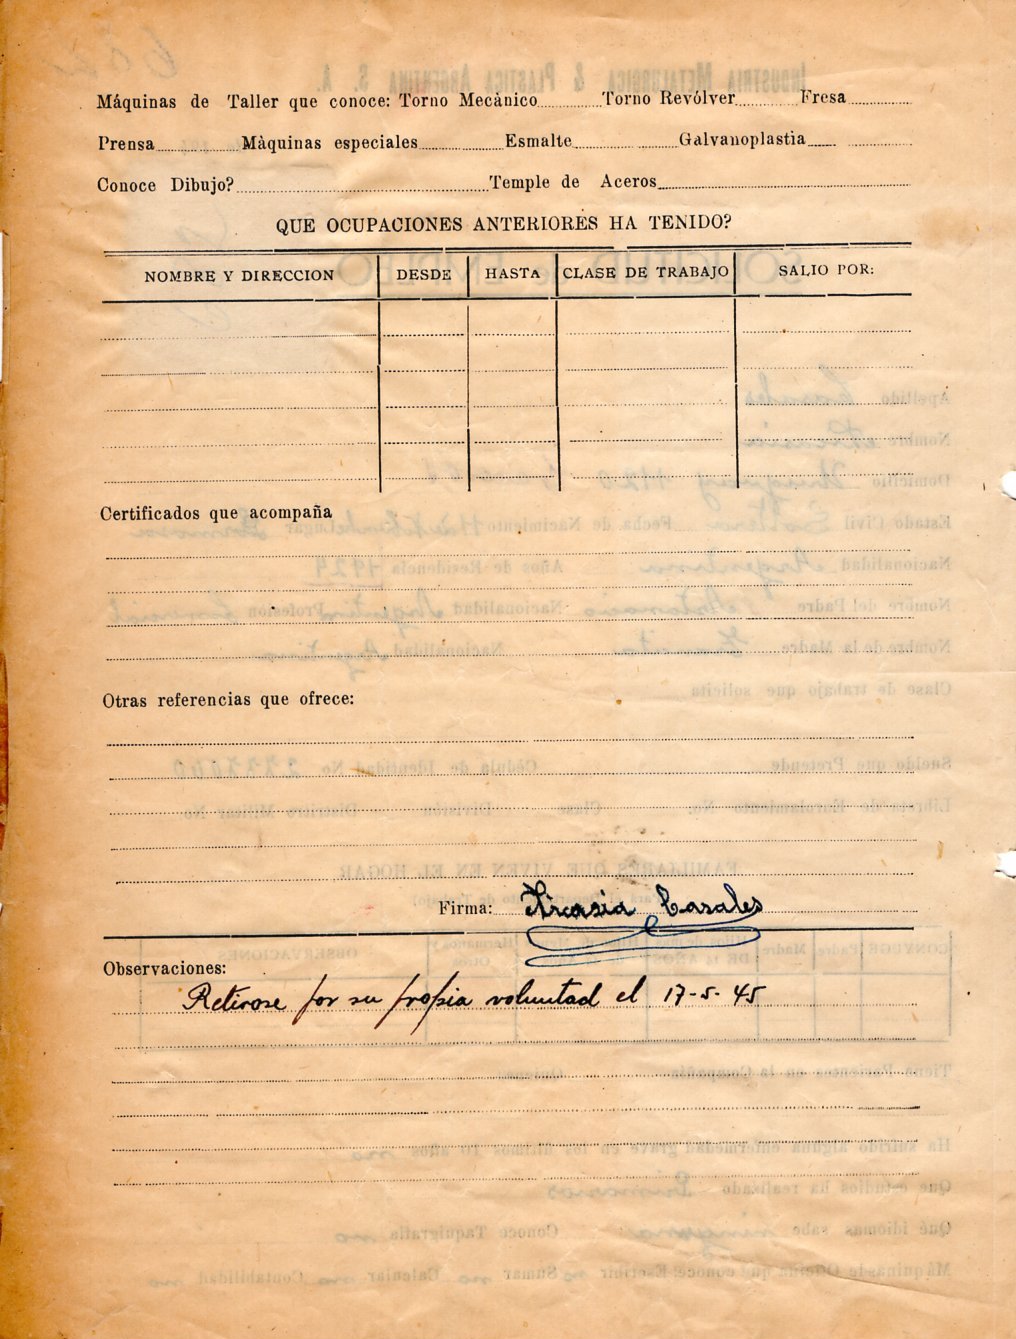 Máquinas de Taller que conoce: Torno Mecànico Torno Revólver Fresa
Prensa Màquinas especiales Esmalte Galvanoplastìa
Conoce Dibujo? Temple de Aceros
QUE OCUPACIONES ANTERIORES HA TENIDO?
NOMBRE Y DIRECCION DESDE HASTA CLASE DE TRABAJO SALIO POR:
Certificados que acompaña
Otras referencias que ofrece:
Firma: Casales
Observaciones:
Retírose por su propia voluntad el 17-5-45